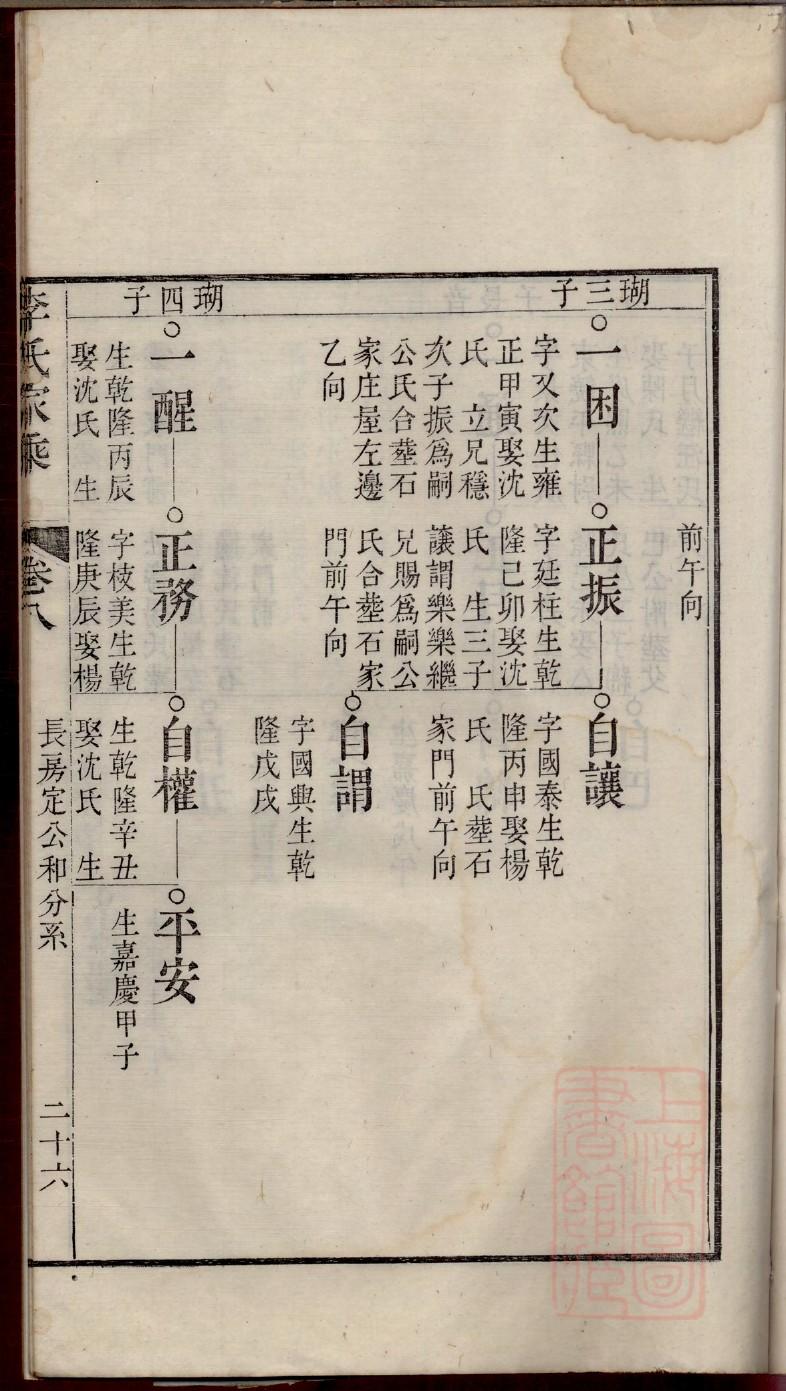 前午向
瑚三子
一困
字又次生雍
正甲寅娶沈
氏 立兄穩
次子振爲嗣
公氏合塟石
家庄屋左邊
乙向
正振
字廷柱生乾
隆己卯娶沈
氏 生三子
讓謂樂樂繼
兄賜爲嗣公
氏合塟石家
門前午向
自讓
字國泰生乾
隆丙申娶楊
氏 氏塟石
家門前午向
自謂
字國興生乾
隆戊戌
瑚四子
一醒
生乾隆丙辰
娶沈氏 生
正務
字枝美生乾
隆庚辰娶楊
自權
生乾隆辛丑
娶沈氏 生
平安
生嘉慶甲子
李氏家乘
卷八
長房定公和分系
二十六
上海圖書館藏